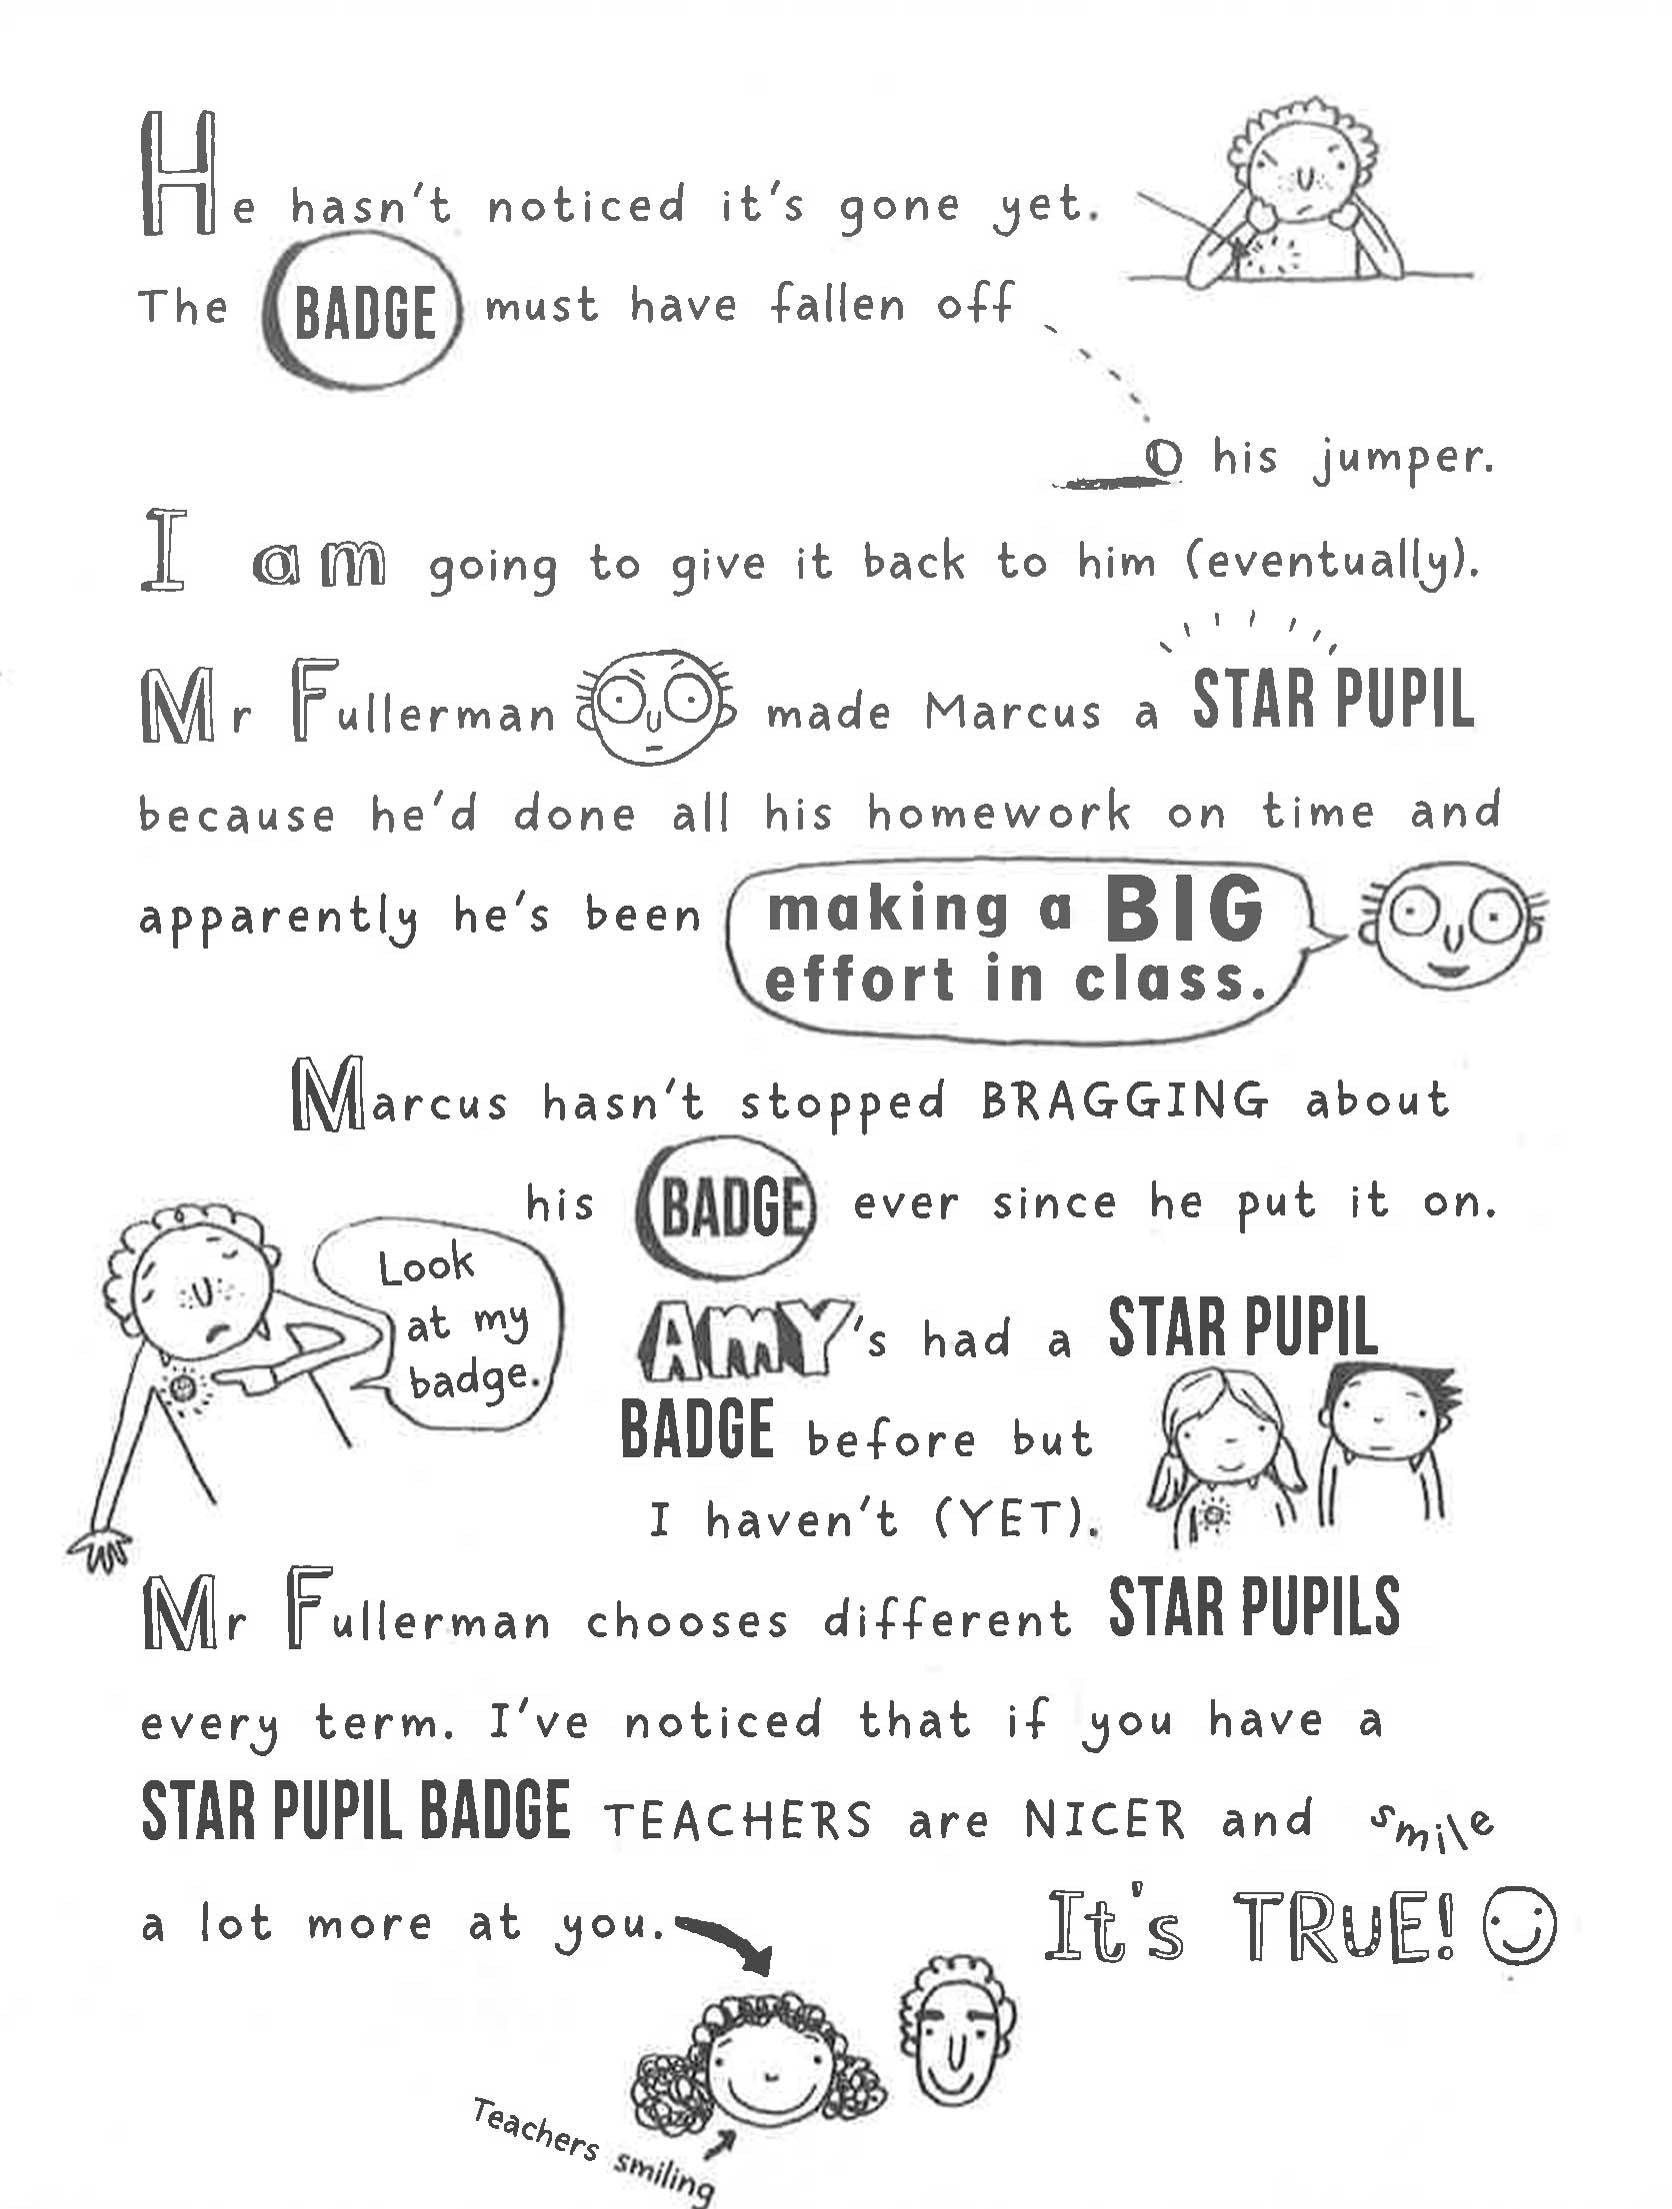 He hasn't noticed it's gone yet.
The BADGE must have fallen off
his jumper.
I am going to give it back to him (eventually).
Mr Fullerman made Marcus a STAR PUPIL
because he'd done all his homework on time and
apparently he's been making a BIG
effort in class.
Marcus hasn't stopped BRAGGING about
his BADGE ever since he put it on.
Look
at my
badge.
AMY's had a STAR PUPIL
BADGE before but
I haven't (YET).
Mr Fullerman chooses different STAR PUPILS
every term. I've noticed that if you have a
STAR PUPIL BADGE TEACHERS are NICER and smile
a lot more at you. It's TRUE!
Teachers smiling